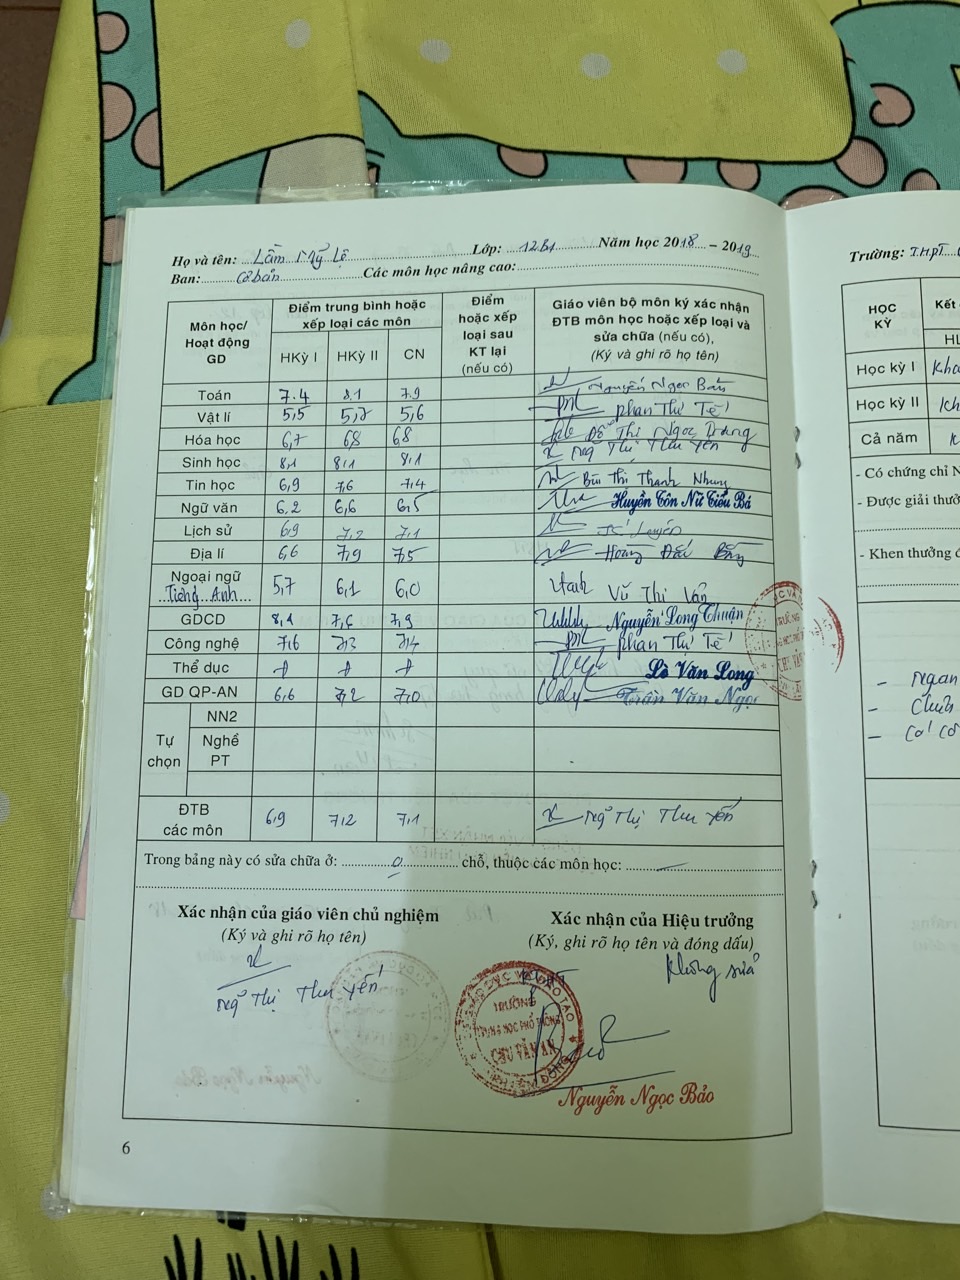 Họ và tên: Lầm Mỹ Lệ Lớp: 12B1 Năm học 2018 – 2019
Ban: Cơ bản Các môn học nâng cao:
Môn học/ Hoạt động GD
Điểm trung bình hoặc xếp loại các môn
HKỳ I HKỳ II CN
Điểm hoặc xếp loại sau KT lại (nếu có)
Giáo viên bộ môn ký xác nhận ĐTB môn học hoặc xếp loại và sửa chữa (nếu có),
(Ký và ghi rõ họ tên)
Toán 7.4 8.1 7.9 Nguyễn Ngọc Bảo
Vật lí 5,5 5,7 5,6 Phan Thị Tế
Hóa học 6,7 6,8 6,8 Đỗ Thị Ngọc Trang
Sinh học 8,1 8,1 8,1 Ng Thị Thu Yến
Tin học 6,9 7,6 7,4 Bùi Thị Thanh Nhung
Ngữ văn 6,2 6,6 6,5 Huyền Tôn Nữ Tiểu Bá
Lịch sử 6,9 7,2 7,1
Địa lí 6,6 7,9 7,5 Hoàng Đắc
Ngoại ngữ
Tiếng Anh 5,7 6,1 6,0 Vũ Thị Vân
GDCD 8,1 7,6 7,9 Nguyễn Long Thuận
Công nghệ 7,6 7,3 7,4 Phan Thị Tế
Thể dục đ đ đ Lê Văn Long
GD QP-AN 6,6 7,2 7,0 Trần Văn Ngọ
Tự chọn
NN2
Nghề PT
ĐTB các môn 6,9 7,2 7,1 Ng Thị Thu Yến
Trong bảng này có sửa chữa ở: 0 chỗ, thuộc các môn học:
Xác nhận của giáo viên chủ nghiệm
(Ký và ghi rõ họ tên)
Ng Thị Thu Yến
Xác nhận của Hiệu trưởng
(Ký, ghi rõ họ tên và đóng dấu)
Không sửa
TRƯỜNG
TRUNG HỌC PHỔ THÔNG
CHU VĂN AN
Nguyễn Ngọc Bảo
6
Trường: THPT
HỌC KỲ
Kết
HL
Học kỳ I Khá
Học kỳ II Kh
Cả năm K
- Có chứng chỉ N
- Được giải thưở
- Khen thưởng đ
- Ngan
- Chăm
- Có cố